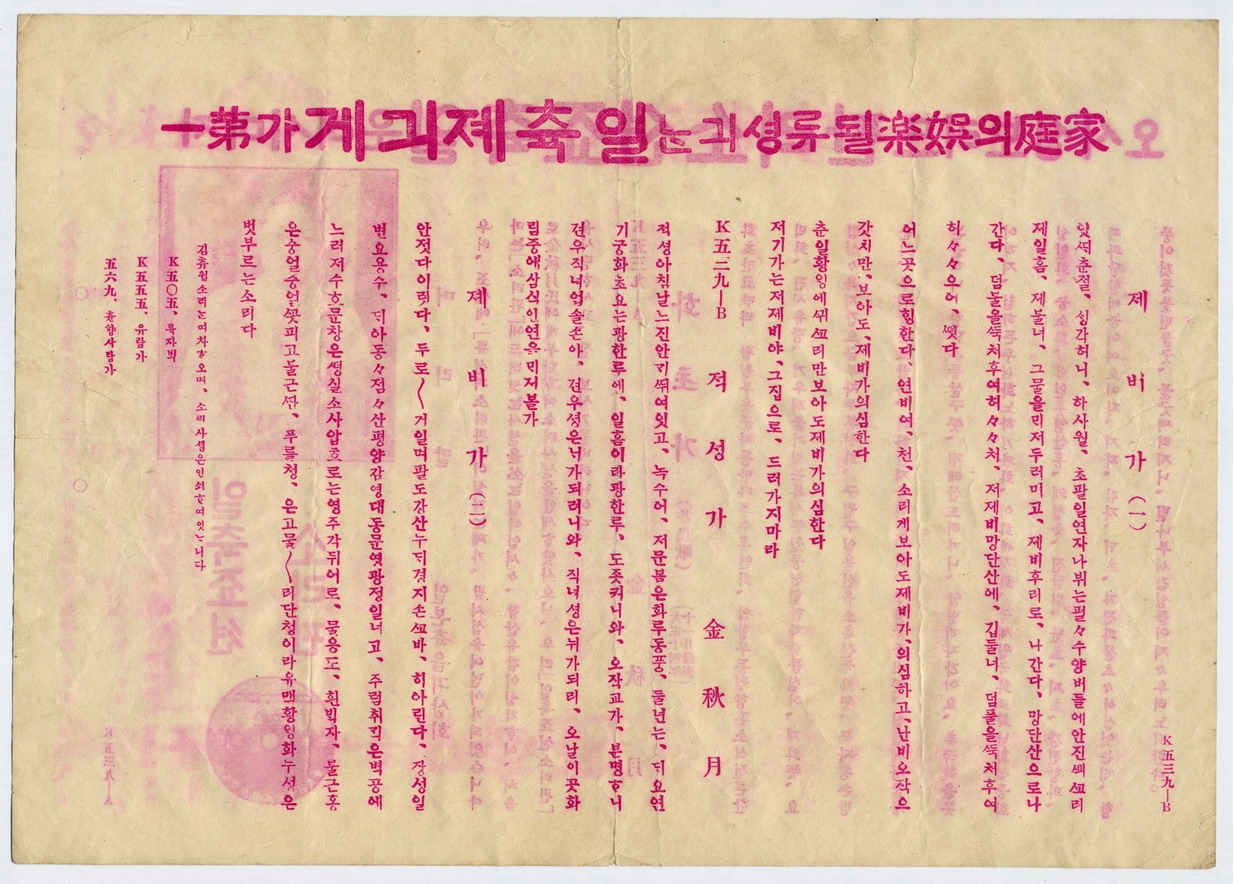 家庭의娯楽될류셩긔는일축제긔게가第一
K五三九—B
제비가(一)
잇ᄯᅢ춘절、싱각허니、하사월、초팔일연자나뷔는펄々수양버들에안진ᄭᅬᄭᅩ리
제일홈、제불너、그물을ᄆᆡ저두러미고、제비후리로、나간다、망단산으로나
간다、덤불을툭처후여허々々처、저제비망단산에、깁들너、덤풀을쑥처후여
허々々으어、ᄯᅥᆺ다
어느곳으로힝한다、연비여、천、소리게보아도제비가、의심하고、난비오작으
갓치만、보아도、제비가의심한다
춘일황잉에ᄭᅬᄭᅩ리만보아도제비가의심한다
저기가는저제비야、그집으로、드러가지마라
K五二九—B 적성가 金秋月
젹셩아침날느진안ᄀᆡ씌여잇고、녹수어、저문봄은화루동풍、둘넌는、ᄃᆡ요연
기궁화초요는광한루에、일홈이라광한루、도좃커니와、오작교가、분명ᄒᆞ니
견우직녀업슬손아、견우셩은ᄂᆡ가되려니와、직녀셩은뉘가되리、오날이곳화
림중애삼싱인연을ᄆᆡ저볼가
제비가(二)
안젓다이럿다、두로〱거일며팔도강산누ᄃᆡ경지손ᄭᅩᆸ바、히아린다、장성일
변요용수、ᄃᆡ야동々점々산평양감영대동문연광정일너고、주럼취ᄀᆡᆨ은벽공에
느러저수호문창은생실소사압흐로는영주각뒤어로、물용도、흰빅자、불근홍
은숭얼숭얼ᄭᅩᆺ피고불근단、푸를청、은고물〱리단청이라유맥황잉화누셩은
벗부르는소리다
김츄월소리는여차ᄒᆞ오며、소리사셜은인쇄ᄒᆞ여잇ᄂᆞ니다
K五〇五、륙자ᄇᆡᆨ
K五五五、유람가
五六九、춘향사랑가